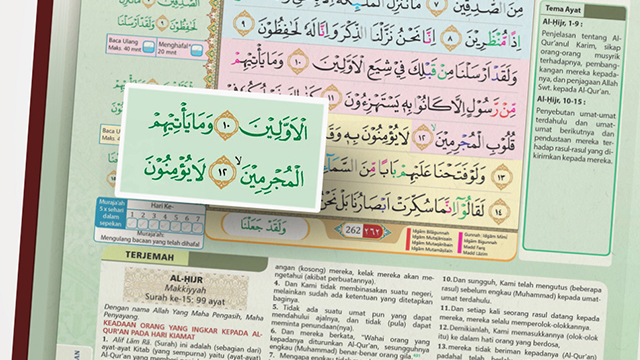 مِنَ الصّٰدِقِيْنَ ٧ مَا نُنَزِّلُ الْمَلٰۤىِٕكَةَ اِلَّا
اِذًا مُّنْظَرِيْنَ ٨ اِنَّا نَحْنُ نَزَّلْنَا الذِّكْرَ وَاِنَّا لَهٗ لَحٰفِظُوْنَ ٩
وَلَقَدْ اَرْسَلْنَا مِنْ قَبْلِكَ فِيْ شِيَعِ الْاَوَّلِيْنَ ١٠ وَمَا يَأْتِيْهِمْ
مِّنْ رَّسُوْلٍ اِلَّا كَانُوْا بِهٖ يَسْتَهْزِءُوْنَ ١١ كَذٰلِكَ نَسْلُكُهٗ فِيْ
قُلُوْبِ الْمُجْرِمِيْنَ ١٢ لَا يُؤْمِنُوْنَ بِهٖ وَقَدْ
١٣ وَلَوْ فَتَحْنَا عَلَيْهِمْ بَابًا مِّنَ السَّمَاۤءِ
لَقَالُوْٓا اِنَّمَا سُكِّرَتْ اَبْصَارُنَا بَلْ نَحْنُ ١٤
لَحٰفِظُوْنَ ٩
وَلَقَدْ اَرْسَلْنَا
Baca Ulang
Maks. 40 mnt
Menghafal
20 mnt
الْاَوَّلِيْنَ ١٠ وَمَا يَأْتِيْهِمْ
الْمُجْرِمِيْنَ ١٢ لَا يُؤْمِنُوْنَ
Murajaah
5 x sehari
dalam
sepekan
Hari Ke-
1 2 3 4 5 6 7
Murajaah:
Mengulang bacaan yang telah dihafal
وَلَقَدْ جَعَلْنَا
262 ٢٦٢
Tema Ayat
Al-Ḥijr, 1-9 :
Penjelasan tentang Al-
Qur'anul Karim, sikap
orang-orang musyrik
terhadapnya, pembang-
kangan mereka kepada-
nya, dan penjagaan Allah
Swt. kepada Al-Qur'an.
Al-Ḥijr, 10-15 :
Penyebutan umat-umat
terdahulu dan umat-
umat berikutnya dan
pendustaan mereka ter-
hadap rasul-rasul yang di-
kirimkan kepada mereka.
TERJEMAH
AL-ḤIJR
Makkiyyah
Surah ke-15: 99 ayat
Dengan nama Allah Yang Maha Pengasih, Maha
Penyayang.
KEADAAN ORANG YANG INGKAR KEPADA AL-
QUR'AN PADA HARI KIAMAT
1. Alif Lām Rā. (Surah) ini adalah (sebagian dari)
ayat-ayat Kitab (yang sempurna) yaitu (ayat-ayat)
angan (kosong) mereka, kelak mereka akan me-
ngetahui (akibat perbuatannya).
4. Dan Kami tidak membinasakan suatu negeri,
melainkan sudah ada ketentuan yang ditetapkan
baginya.
5. Tidak ada suatu umat pun yang dapat
mendahului ajalnya, dan tidak (pula) dapat
meminta penundaan(nya).
6. Dan mereka berkata, "Wahai orang yang
kepadanya diturunkan Al-Qur'an, sesungguhnya
engkau (Muhammad) benar-benar orang gila.
7. Mengapa engkau tidak
10. Dan sungguh, Kami telah mengutus (beberapa
rasul) sebelum engkau (Muhammad) kepada umat-
umat terdahulu.
11. Dan setiap kali seorang rasul datang kepada
mereka, mereka selalu memperolok-olokkannya.
12. Demikianlah, Kami memasukkannya (olok-olok
itu) ke dalam hati orang yang berdosa,